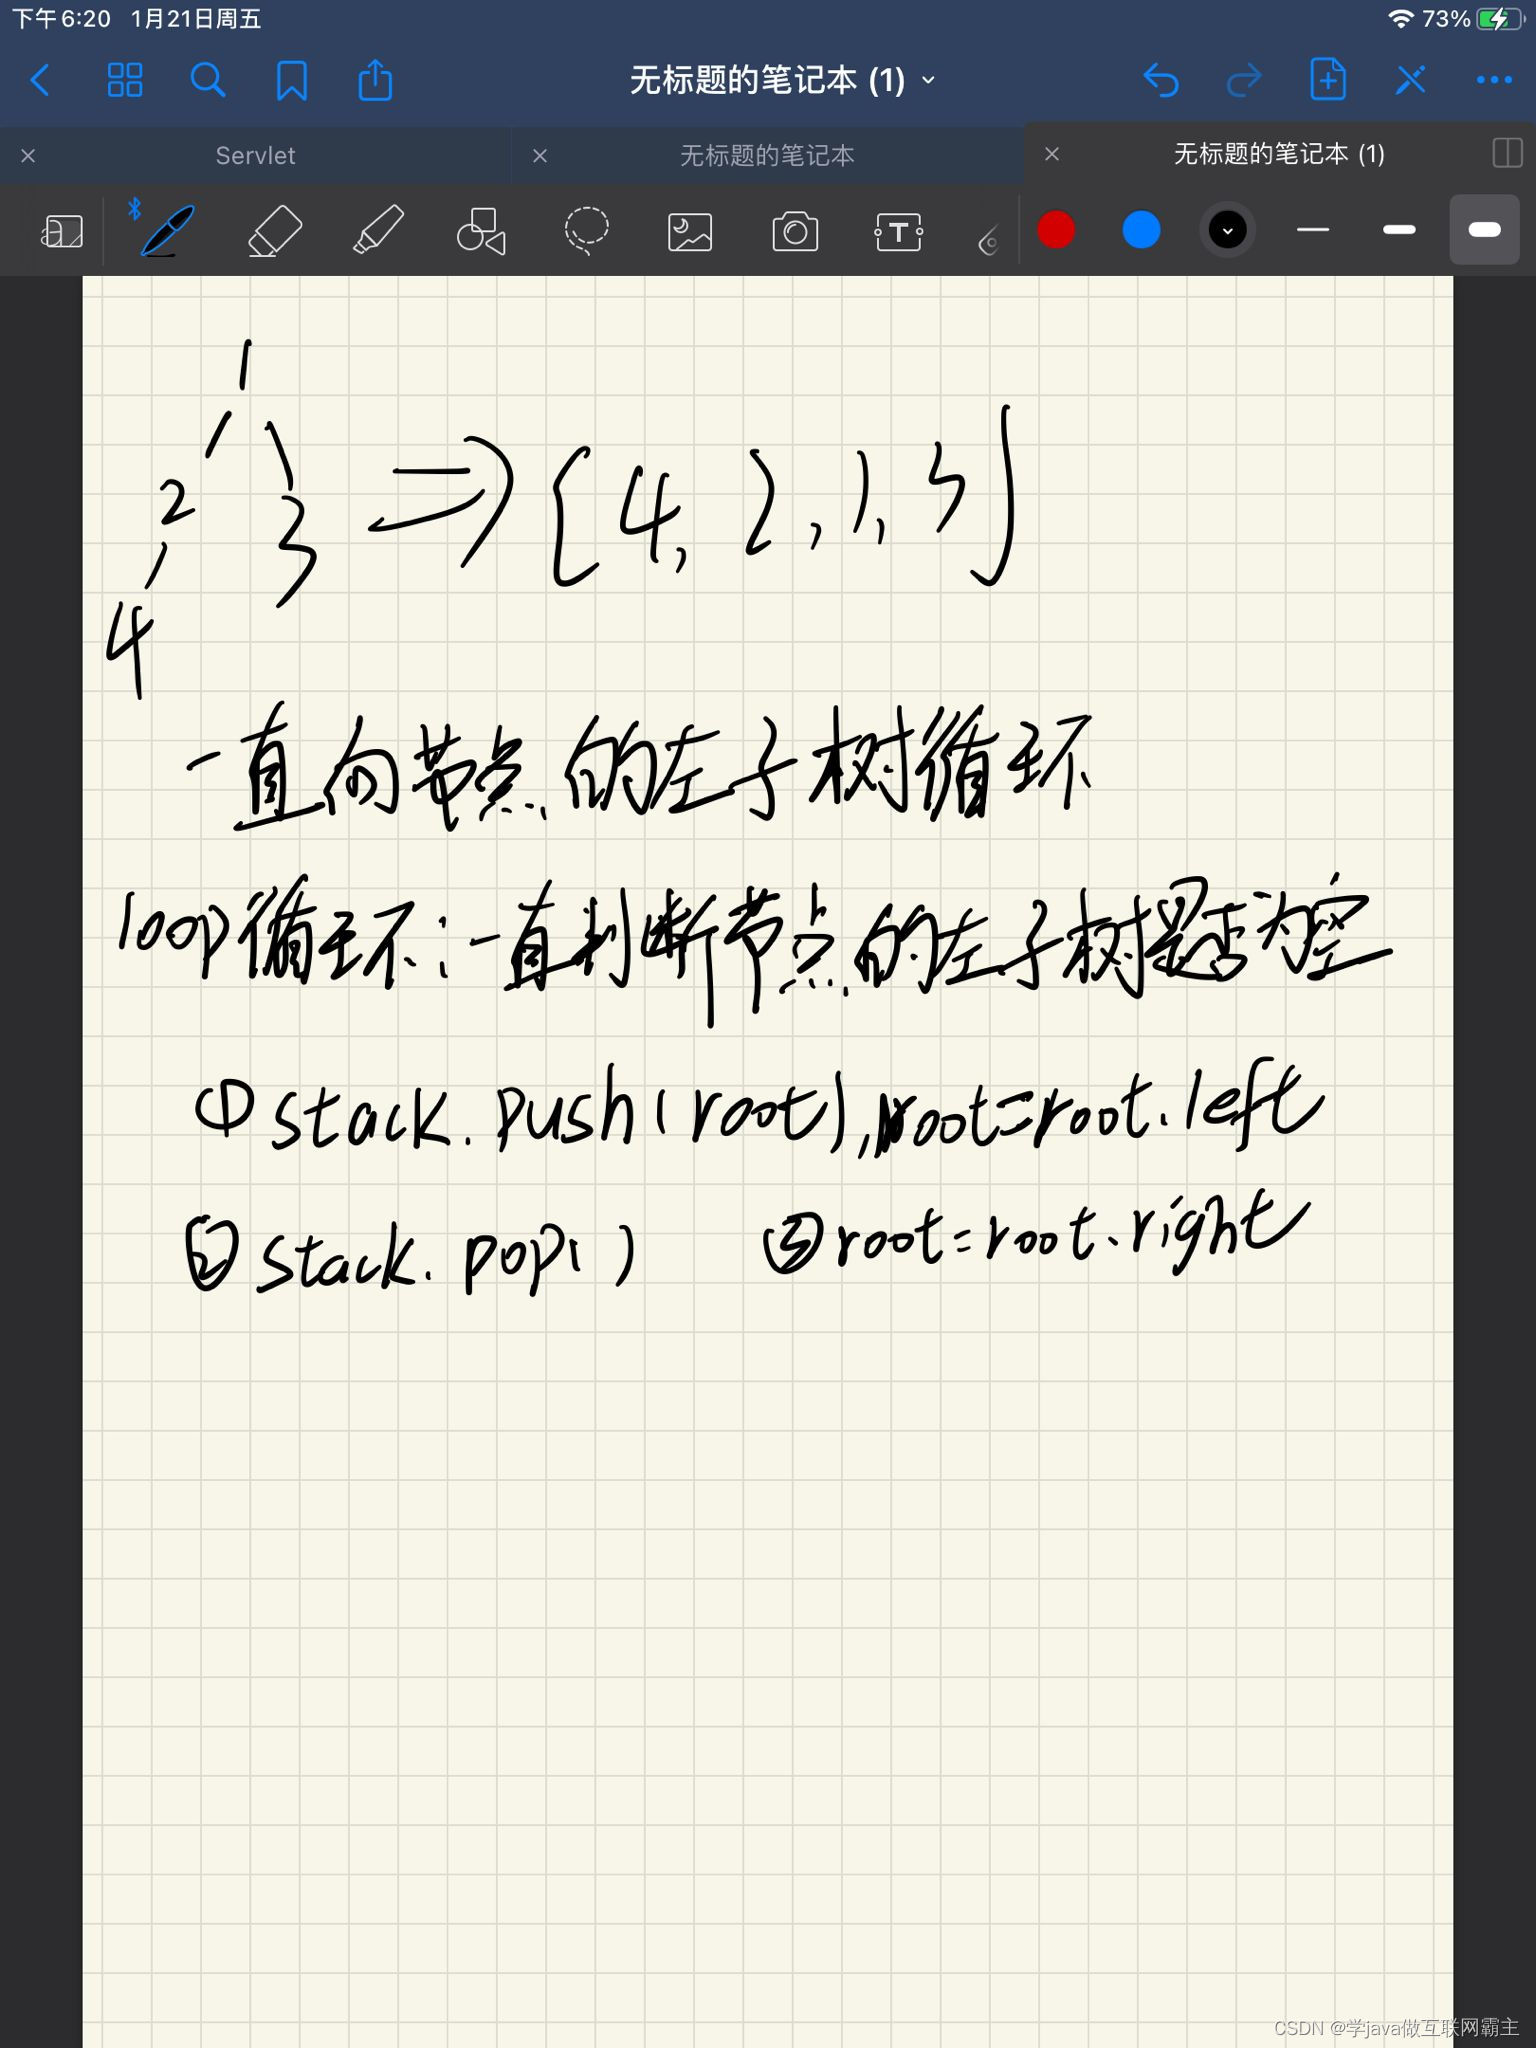 下午6:20 1月21日周五 73%
无标题的笔记本 (1)
Servlet 无标题的笔记本 无标题的笔记本 (1)
1
2 3 => [4, 2, 1, 3]
4
一直向节点的左子树循环
loop循环:一直判断节点的左子树是否为空
① stack.push(root), root=root.left
② stack.pop() ③ root=root.right
CSDN @学java做互联网霸主